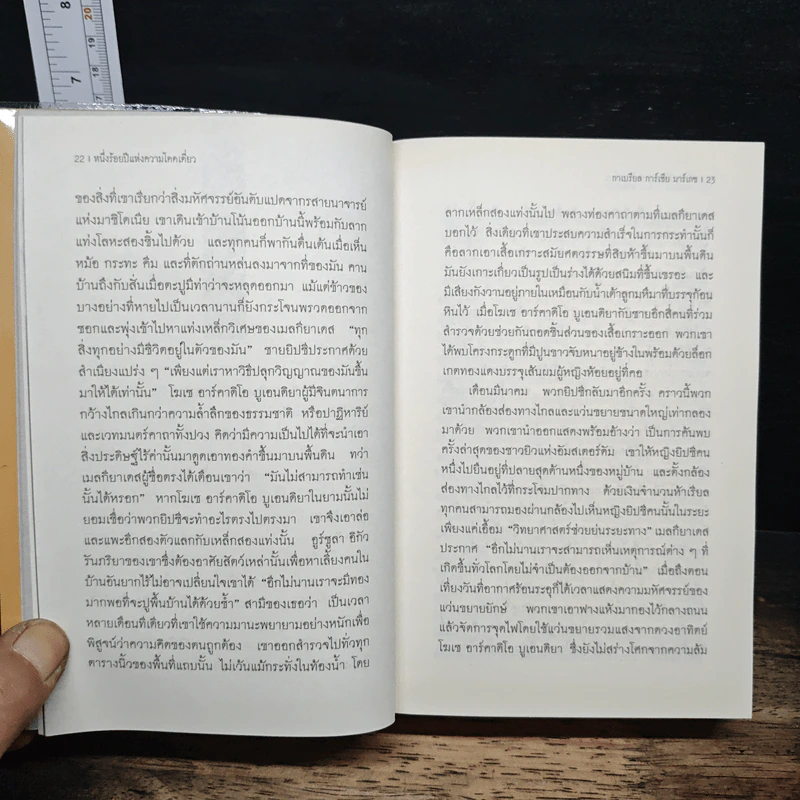 8
7
20
19
18
17
22 | หนึ่งร้อยปีแห่งความโดดเดี่ยว
ของสิ่งที่เขาเรียกว่าสิ่งมหัศจรรย์อันดับแปดจากรสายนาจารย์
แห่งมาซิโดเนีย เขาเดินเข้าบ้านโน้นออกบ้านนี้พร้อมกับลาก
แท่งโลหะสองชิ้นไปด้วย และทุกคนก็พากันตื่นเต้นเมื่อเห็น
หม้อ กระทะ คีม และที่ตักถ่านหล่นลงมาจากที่ของมัน คาน
บ้านถึงกับสั่นเมื่อตะปูมีท่าว่าจะหลุดออกมา แม้แต่ข้าวของ
บางอย่างที่หายไปเป็นเวลานานก็ยังกระโจนพรวดออกจาก
ซอกและพุ่งเข้าไปหาแท่งเหล็กวิเศษของเมลกียาเดส “ทุก
สิ่งทุกอย่างมีชีวิตอยู่ในตัวของมัน” ชายยิปซีประกาศด้วย
สำเนียงแปร่ง ๆ “เพียงแต่เราหาวิธีปลุกวิญญาณของมันขึ้น
มาให้ได้เท่านั้น” โฆเซ อาร์คาดิโอ บูเอนดิยาผู้มีจินตนาการ
กว้างไกลเกินกว่าความล้ำลึกของธรรมชาติ หรือปาฏิหาริย์
และเวทมนตร์คาถาทั้งปวง คิดว่ามีความเป็นไปได้ที่จะนำเอา
สิ่งประดิษฐ์ไร้ค่านั้นมาดูดเอาทองคำขึ้นมาบนพื้นดิน ทว่า
เมลกียาเดสผู้ซื่อตรงได้เตือนเขาว่า “มันไม่สามารถทำเช่น
นั้นได้หรอก” หากโฆเซ อาร์คาดิโอ บูเอนดิยาในยามนั้นไม่
ยอมเชื่อว่าพวกยิปซีจะทำอะไรตรงไปตรงมา เขาจึงเอาล่อ
และแพะอีกสองตัวแลกกับเหล็กสองแท่งนั้น อูร์ซูลา อิกัว
รันภริยาของเขาซึ่งต้องอาศัยสัตว์เหล่านั้นเพื่อหาเลี้ยงคนใน
บ้านอันยากไร้ไม่อาจเปลี่ยนใจเขาได้ “อีกไม่นานเราจะมีทอง
มากพอที่จะปูพื้นบ้านได้ด้วยซ้ำ” สามีของเธอว่า เป็นเวลา
หลายเดือนทีเดียวที่เขาใช้ความมานะพยายามอย่างหนักเพื่อ
พิสูจน์ว่าความคิดของตนถูกต้อง เขาออกสำรวจไปทั่วทุก
ตารางนิ้วของพื้นที่แถบนั้น ไม่เว้นแม้กระทั่งในท้องน้ำ โดย
กาเบรียล การ์เซีย มาร์เกซ | 23
ลากเหล็กสองแท่งนั้นไป พลางท่องคาถาตามที่เมลกียาเดส
บอกไว้ สิ่งเดียวที่เขาประสบความสำเร็จในการกระทำนั้นก็
คือลากเอาเสื้อเกราะสมัยศตวรรษที่สิบห้าขึ้นมาบนพื้นดิน
มันยังเกาะเกี่ยวเป็นรูปเป็นร่างได้ด้วยสนิมที่ขึ้นเขรอะ และ
มีเสียงกังวานอยู่ภายในเหมือนกับน้ำเต้าลูกมหึมาที่บรรจุก้อน
หินไว้ เมื่อโฆเซ อาร์คาดิโอ บูเอนดิยากับชายอีกสี่คนที่ร่วม
สำรวจด้วยช่วยกันถอดชิ้นส่วนของเสื้อเกราะออก พวกเขา
ได้พบโครงกระดูกที่มีปูนขาวจับหนาอยู่ข้างในพร้อมด้วยล็อก
เกตทองแดงบรรจุเส้นผมผู้หญิงห้อยอยู่ที่คอ
เดือนมีนาคม พวกยิปซีกลับมาอีกครั้ง คราวนี้พวก
เขานำกล้องส่องทางไกลและแว่นขยายขนาดใหญ่เท่ากลอง
มาด้วย พวกเขานำออกแสดงพร้อมอ้างว่า เป็นการค้นพบ
ครั้งล่าสุดของชาวยิวแห่งอัมสเตอร์ดัม เขาให้หญิงยิปซีคน
หนึ่งไปยืนอยู่ที่ปลายสุดด้านหนึ่งของหมู่บ้าน และตั้งกล้อง
ส่องทางไกลไว้ที่กระโจมปากทาง ด้วยเงินจำนวนห้าเรียล
ทุกคนสามารถมองผ่านกล้องไปเห็นหญิงยิปซีคนนั้นในระยะ
เพียงแค่เอื้อม “วิทยาศาสตร์ช่วยย่นระยะทาง” เมลกียาเดส
ประกาศ “อีกไม่นานเราจะสามารถเห็นเหตุการณ์ต่าง ๆ ที่
เกิดขึ้นทั่วโลกโดยไม่จำเป็นต้องออกจากบ้าน” เมื่อถึงตอน
เที่ยงวันที่อากาศร้อนระอุก็ได้เวลาแสดงความมหัศจรรย์ของ
แว่นขยายยักษ์ พวกเขาเอาฟางแห้งมากองไว้กลางถนน
แล้วจัดการจุดไฟโดยใช้แว่นขยายรวมแสงจากดวงอาทิตย์
โฆเซ อาร์คาดิโอ บูเอนดิยา ซึ่งยังไม่สร่างโศกจากความล้ม